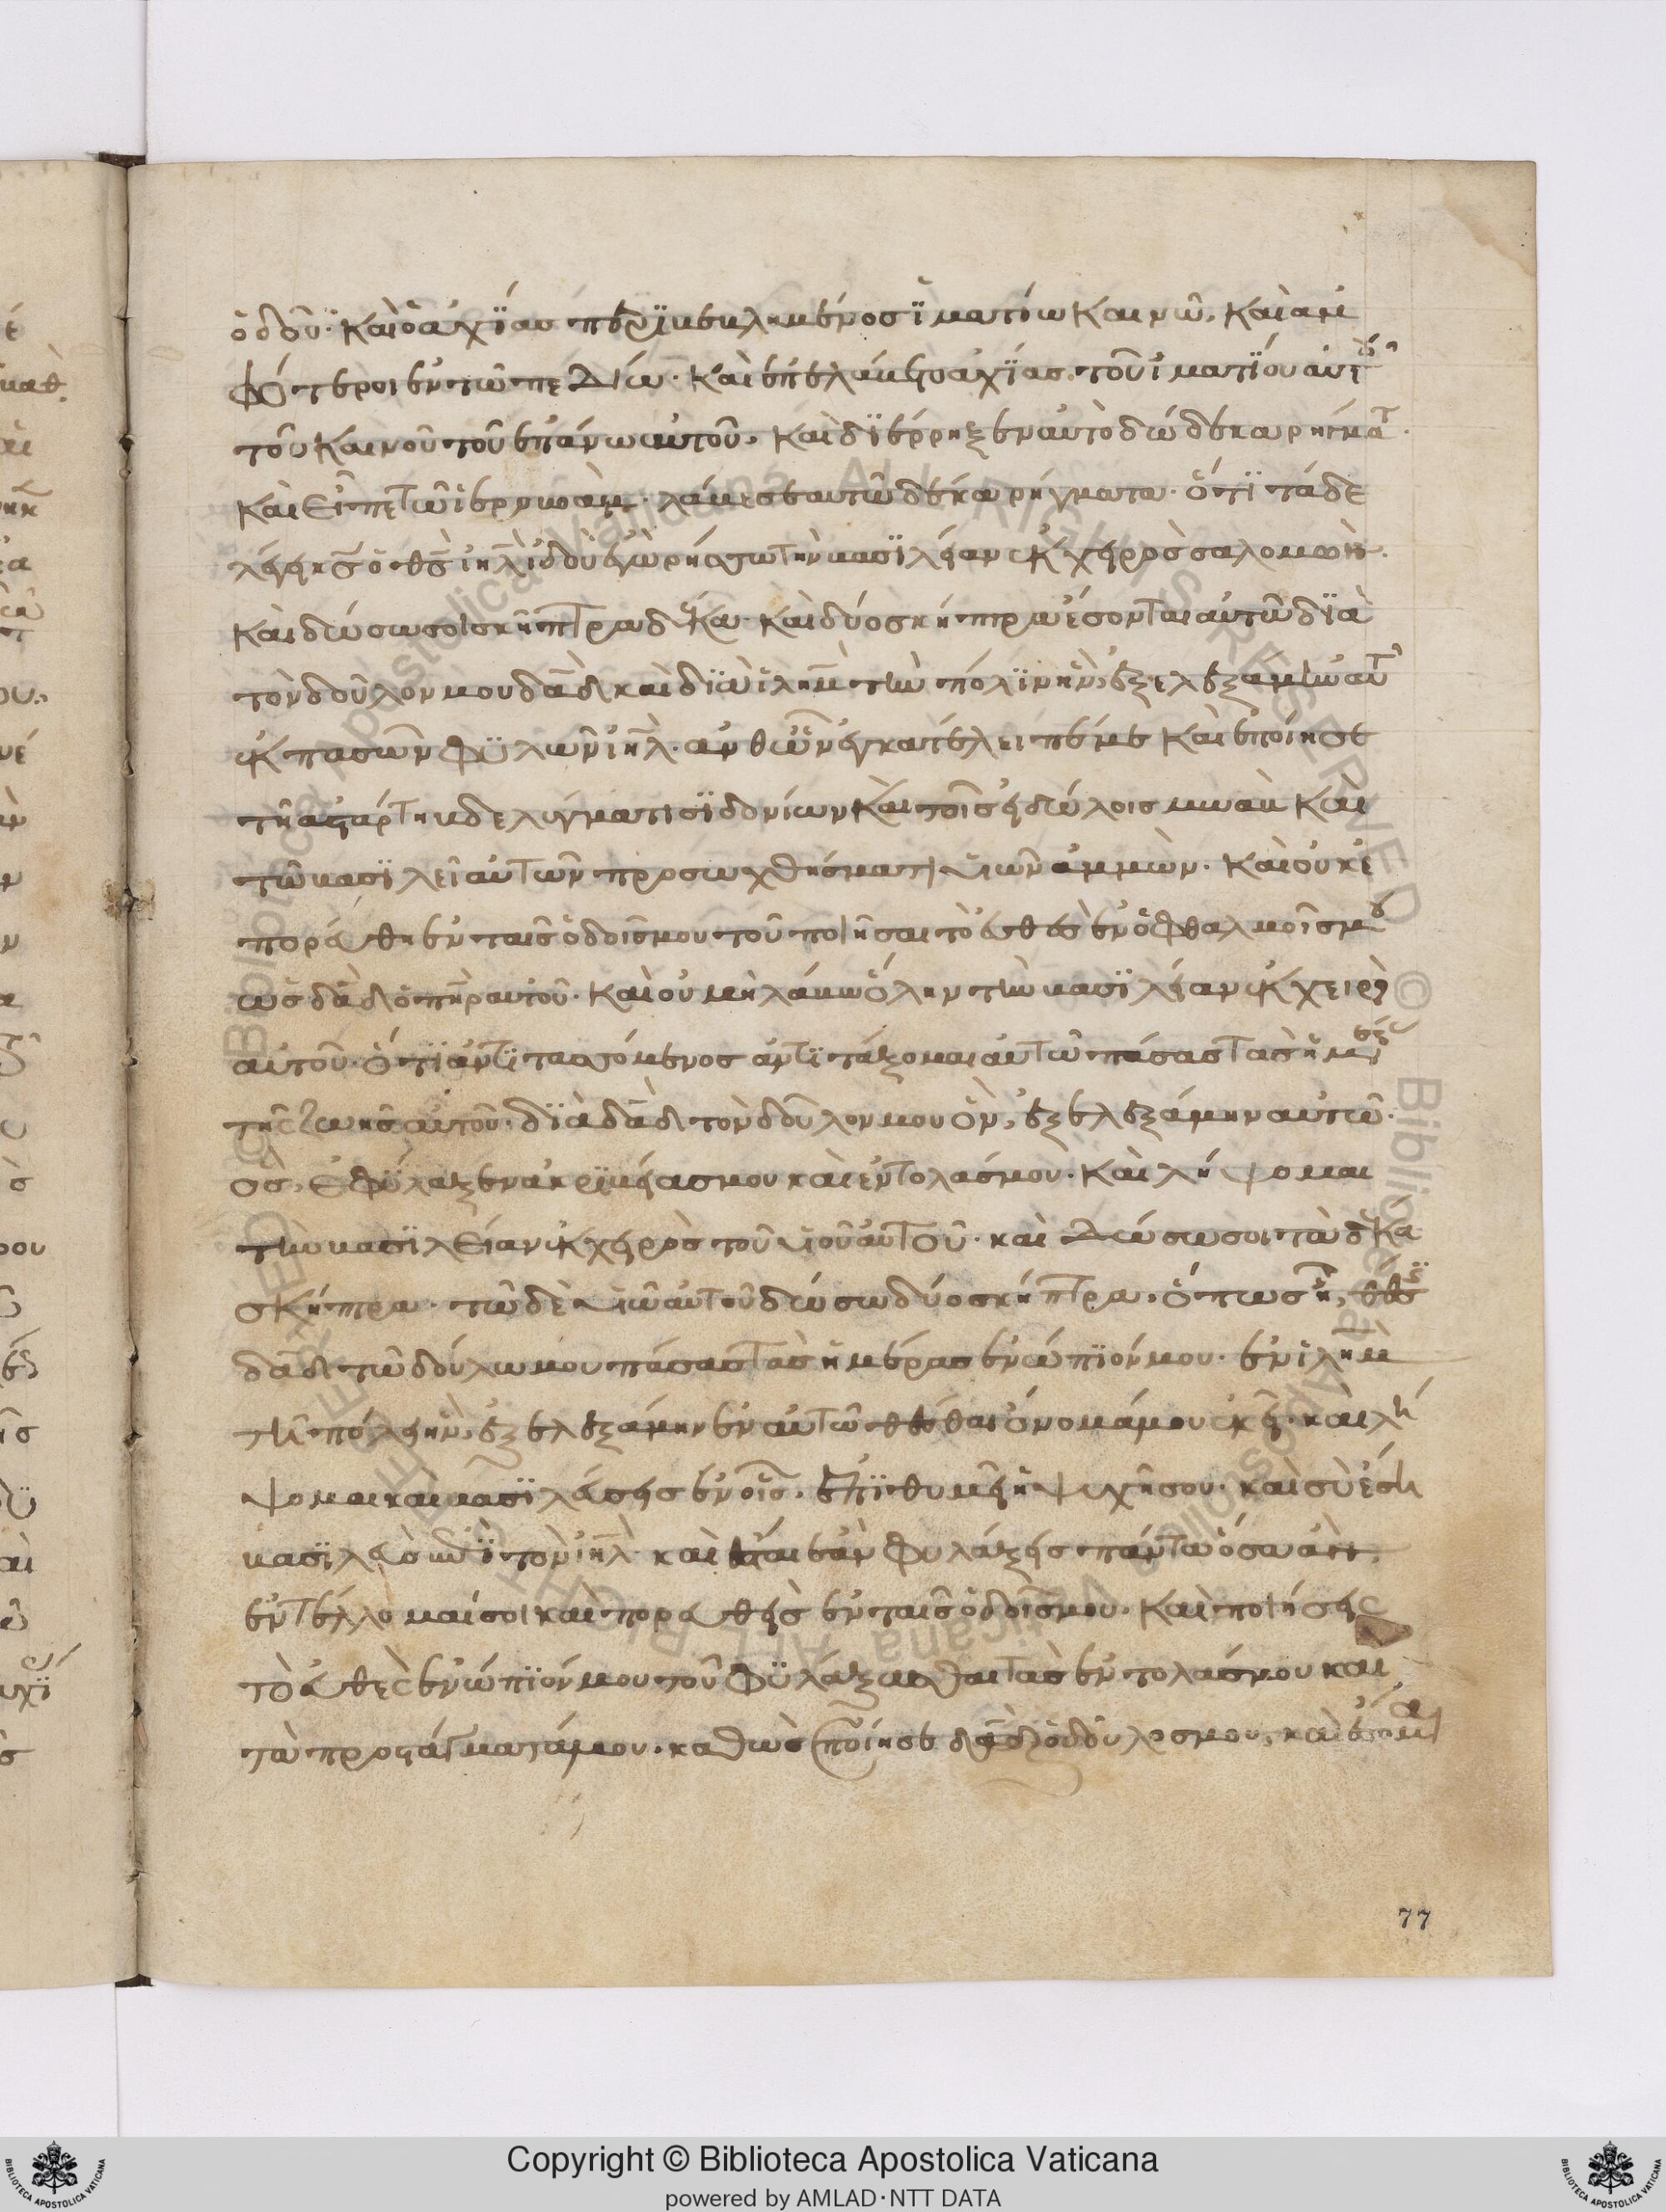 ὁδοῦ· καὶ ὁ ἀχϊὰσ περϊβεβλημένοσ ἱματίω καινῶ, καὶ ἀμ
φότεροι ἐν τῶ πεδίω· καὶ ἐπελάβετο ἀχϊὰσ τοῦ ἱματΐου αὐτοῦ
τοῦ καινοῦ τοῦ ἐπάνω αὐτοῦ· καὶ δϊέρρηξεν αὐτὸ δώδεκα ρήγματ
καὶ εἶπε τῶ ἱεροβοὰμ· λάβε σεαυτῶ δέκα ρήγματα· ὅτϊ τάδε
λέγει κ̅σ̅ ὁ θ̅σ̅ ι̅η̅λ̅ ἰδοὺ ἐγὼ ρήσσω τὴν βασϊλείαν ἐκ χειρὸσ σαλομῶν·
καὶ δώσω σοι σκῆπτρα δέκα· καὶ δύο σκήπτρα ἔσονται αὐτῶ δϊὰ
τὸν δοῦλον μου δα̅δ̅ καὶ δϊὰ ἰλη̅μ̅ τὴν πόλϊν ἣν ἐξελεξάμην αὐτ
ἐκ πασῶν φϋλῶν ι̅η̅λ̅· ἀνθῶν ἐγκατέλειπέ με καὶ ἐποίησε
τῆ ἀστάρτη βδελύγματι σϊδονίων καὶ τοῖσ εἰδώλοισ μωαβ καὶ
τῶ βασϊλεῖ αὐτῶν προσωχθήσματι υἱῶν ἀμμών· καὶ οὐκ ἐ
πορεύθη ἐν ταῖσ ὁδοῖσ μου τοῦ ποιῆσαι τὸ εὐθὲσ ἐν ὀφθαλμοῖσ μου
ὡσ δα̅δ̅ ὁ πη̅ρ αὐτοῦ· καὶ οὐ μὴ λάβω ὅλην τὴν βασϊλείαν ἐκ χειρὸσ
αὐτοῦ· ὅτϊ ἀντϊτασσόμενοσ ἀντϊτάξομαι αὐτῶ πάσασ τὰσ ἡμέρασ
τῆσ ζωῆσ αὐτοῦ· δϊὰ δα̅δ̅ τὸν δοῦλον μου ὃν, ἐξελεξάμην αὐτῶ·
ὃσ, ἐφϋλαξεν ἀκρϊβείασ μου καὶ ἐντολάσ μου· καὶ λήψομαι
τὴν βασϊλείαν ἐκ χειρὸσ τοῦ υἱοῦ αὐτοῦ· καὶ δώσω σοι τὰ δέκα
σκήπτρα· τῶ δὲ υἱῶ αὐτοῦ δώσω δύο σκήπτρα, ὅπωσ ἦ, θέσϊσ
δα̅δ̅ τῶ δούλω μου πάσασ τὰσ ἡμέρασ ἐνώπϊόν μου· ἐν ἰλη̅μ̅
τῆ πόλει ἣν, ἐξελεξάμην ἐν αὐτῶ θέσθαι ὄνομά μου ἐκεῖ· καὶ λή
ψομαι καὶ βασϊλεύσεισ ἐν οἷσ, ἐπϊθυμεῖ ἡ ψυχή σου· καὶ σὺ ἔση
βασϊλεὺσ ἐπϊ τὸν ι̅η̅λ̅ καὶ ἔσται ἐὰν φυλάξεισ πάντα ὅσα ἂν,
ἐντέλλομαί σοι καὶ πορευθεῖσ ἐν ταῖσ ὁδοῖσ μου· καὶ ποιήσεισ
τὸ εὐθὲσ ἐνώπϊόν μου τοῦ φϋλάξασθαι τὰσ ἐντολάσ μου καὶ
τὰ προστάγματά μου· καθὼσ ἐποίησε δα̅δ̅ ὁ δοῦλοσ μου, καὶ ἔσομαι
77
Copyright © Biblioteca Apostolica Vaticana
powered by AMLAD·NTT DATA